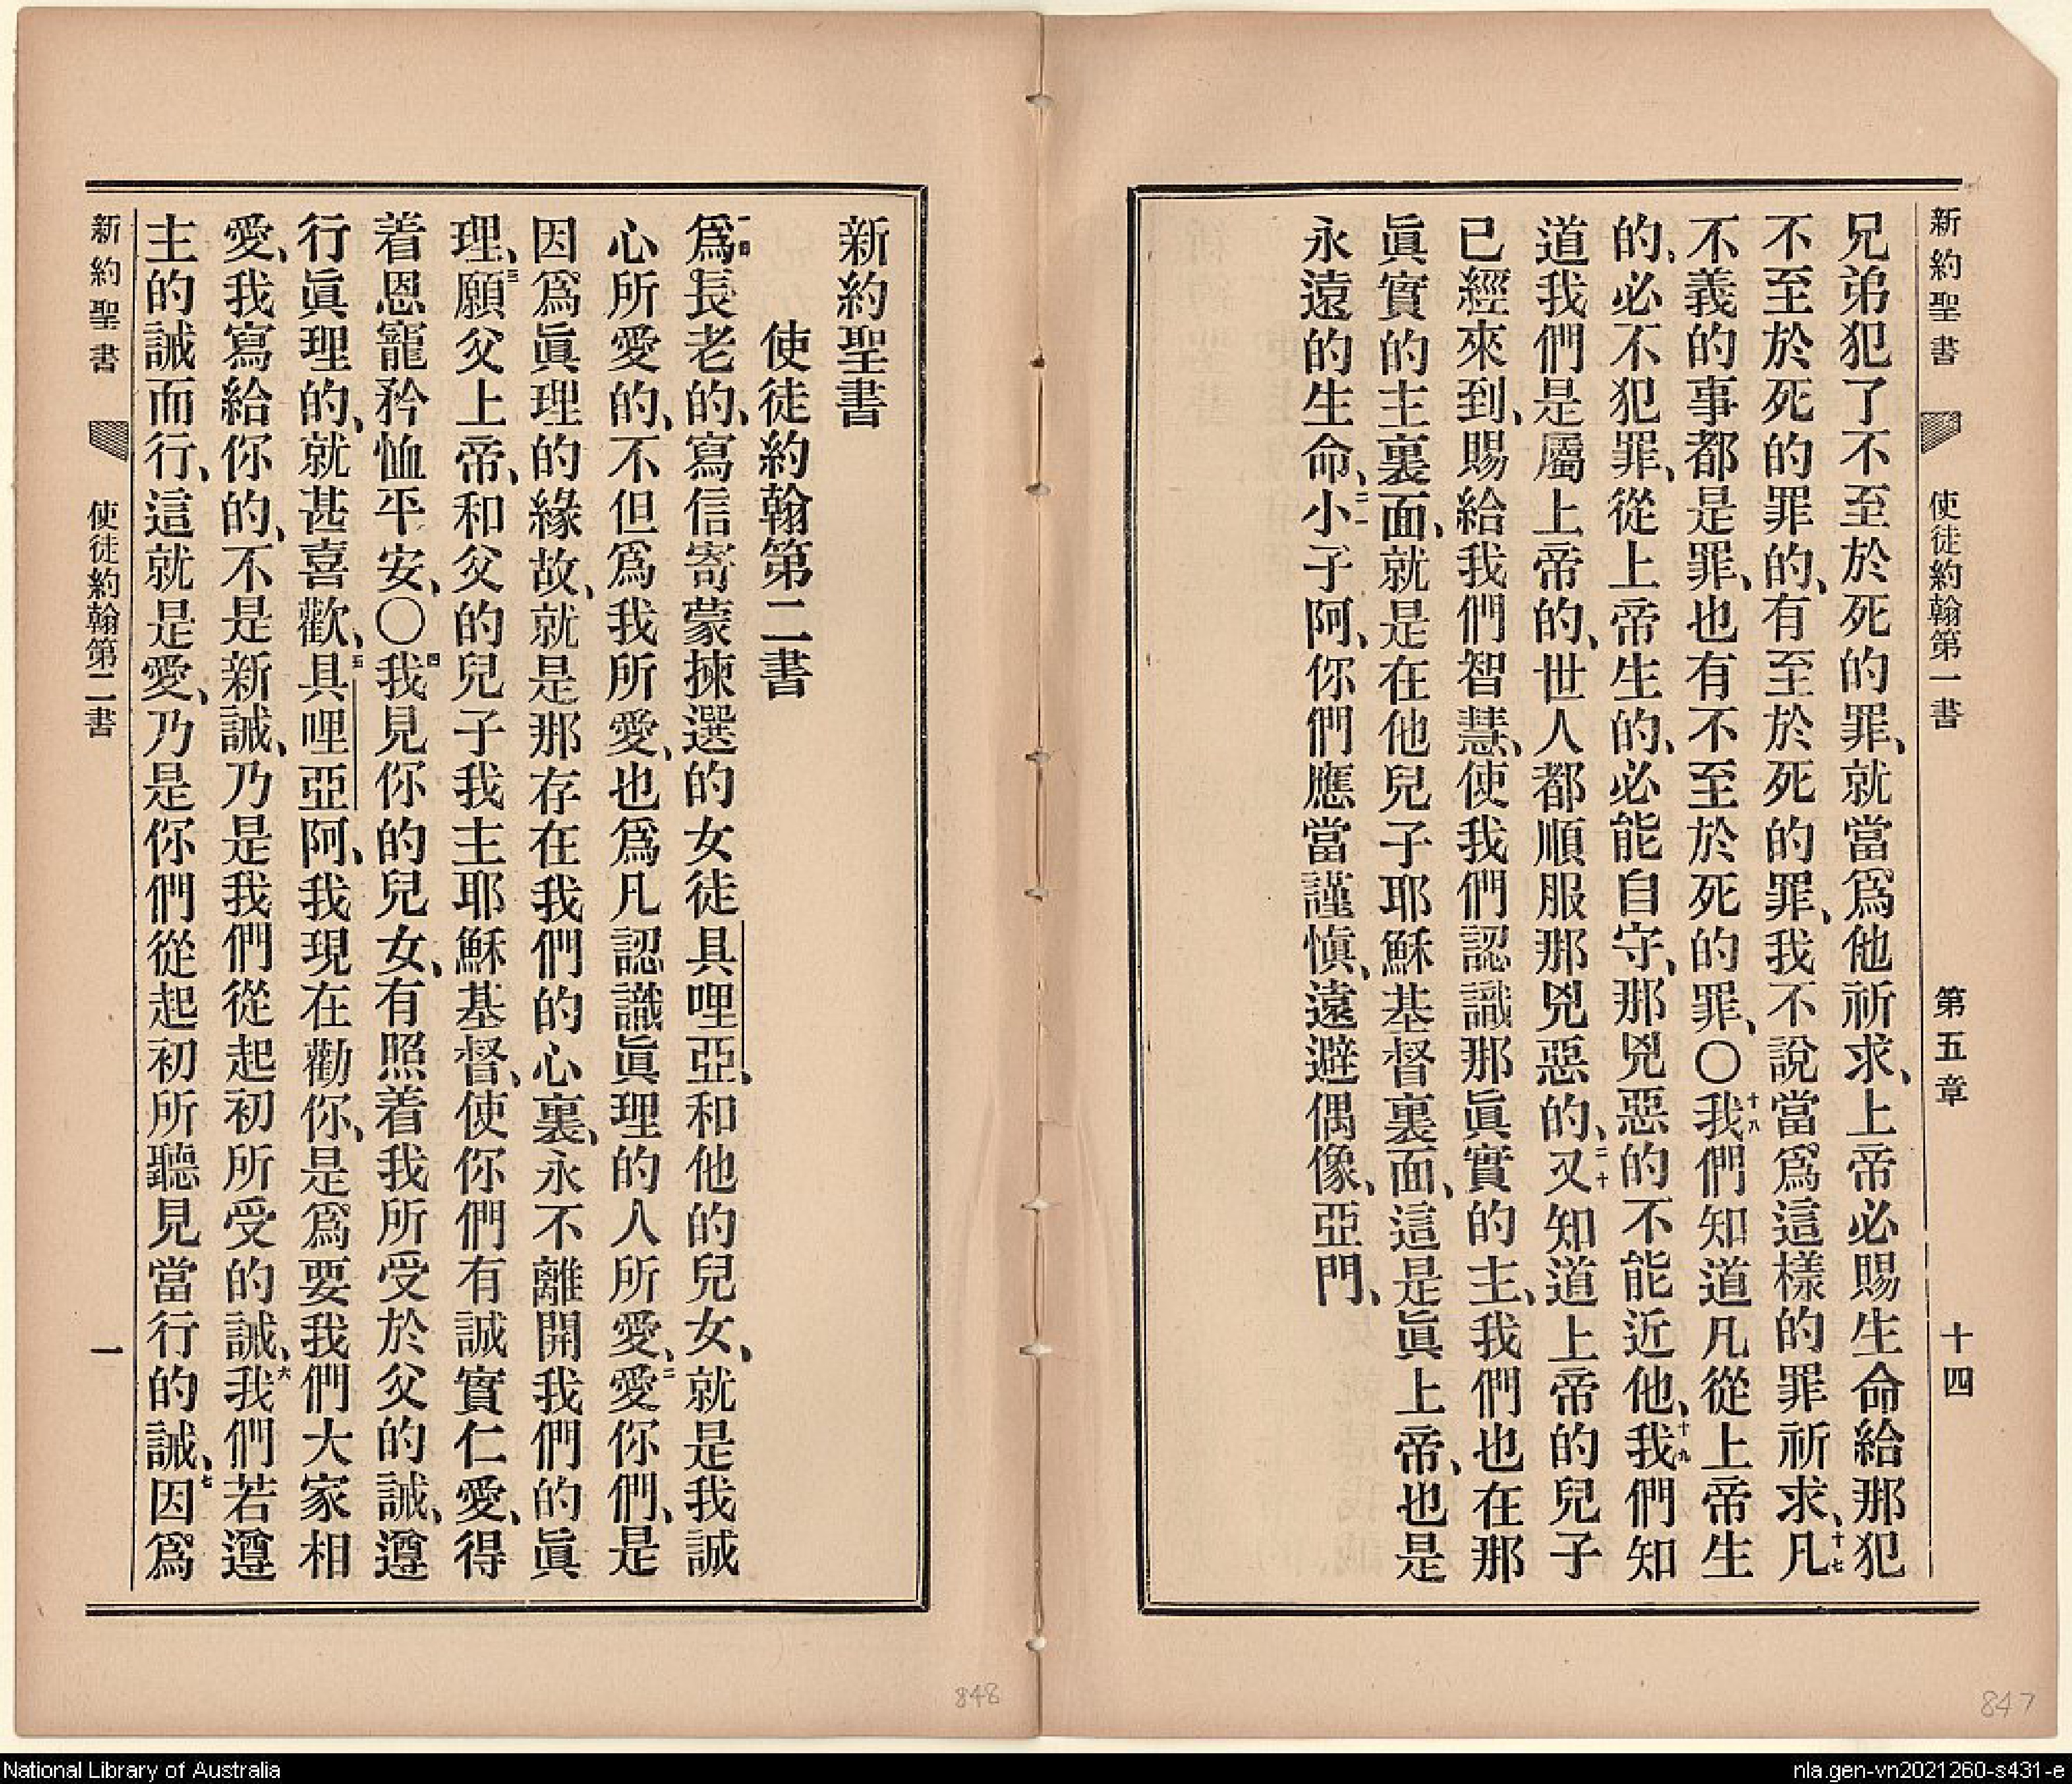 新約聖書 使徒約翰第一書 第五章 十四
兄弟犯了不至於死的罪、就當爲他祈求、上帝必賜生命給那犯
不至於死的罪的、有至於死的罪、我不說當爲這樣的罪祈求、十七凡
不義的事都是罪、也有不至於死的罪、〇十八我們知道凡從上帝生
的、必不犯罪、從上帝生的、必能自守、那兇惡的不能近他、十九我們知
道我們是屬上帝的、世人都順服那兇惡的、二十又知道上帝的兒子
已經來到、賜給我們智慧、使我們認識那眞實的主、我們也在那
眞實的主裏面、就是在他兒子耶穌基督裏面、這是眞上帝、也是
永遠的生命、二一小子阿、你們應當謹愼、遠避偶像、亞門、
新約聖書
使徒約翰第二書
一爲長老的、寫信寄蒙揀選的女徒具哩亞、和他的兒女、就是我誠
心所愛的、不但爲我所愛、也爲凡認識眞理的人所愛、二愛你們、是
因爲眞理的緣故、就是那存在我們的心裏、永不離開我們的眞
理、三願父上帝、和父的兒子我主耶穌基督、使你們有誠實仁愛、得
着恩寵矜恤平安、〇四我見你的兒女、有照着我所受於父的誡、遵
行眞理的、就甚喜歡、五具哩亞阿、我現在勸你、是爲要我們大家相
愛、我寫給你的、不是新誡、乃是我們從起初所受的誡、六我們若遵
主的誡而行、這就是愛、乃是你們從起初所聽見當行的誡、七因爲
新約聖書 使徒約翰第二書 一
848
847
National Library of Australia
nla.gen-vn2021260-s431-e